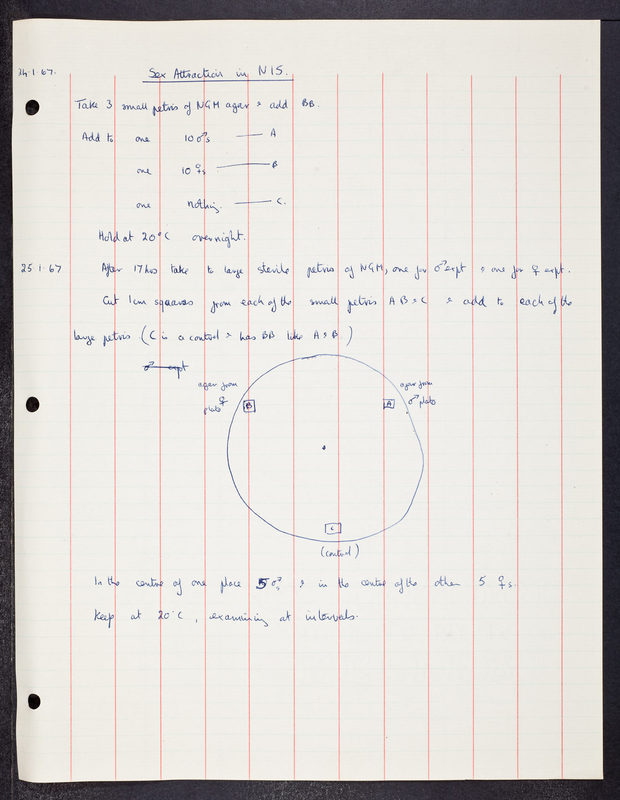 24·1·67. Sex Attraction in N15.
Take 3 small petris of NGM agar & add BB.
Add to one 10 ♂s — A
one 10 ♀s — B
one nothing. — C.
Hold at 20°C overnight.
25·1·67 After 17hrs take to large sterile petris of NGM, one for ♂ expt & one for ♀ expt.
Cut 1cm squares from each of the small petris A B & C & add to each of the
large petris (C is a control & has BB like A & B)
♂ expt
agar from ♀ plate
agar from ♂ plate
B
A
C
(control)
In the centre of one place 5 ♂s & in the centre of the other 5 ♀s.
Keep at 20°C, examining at intervals.